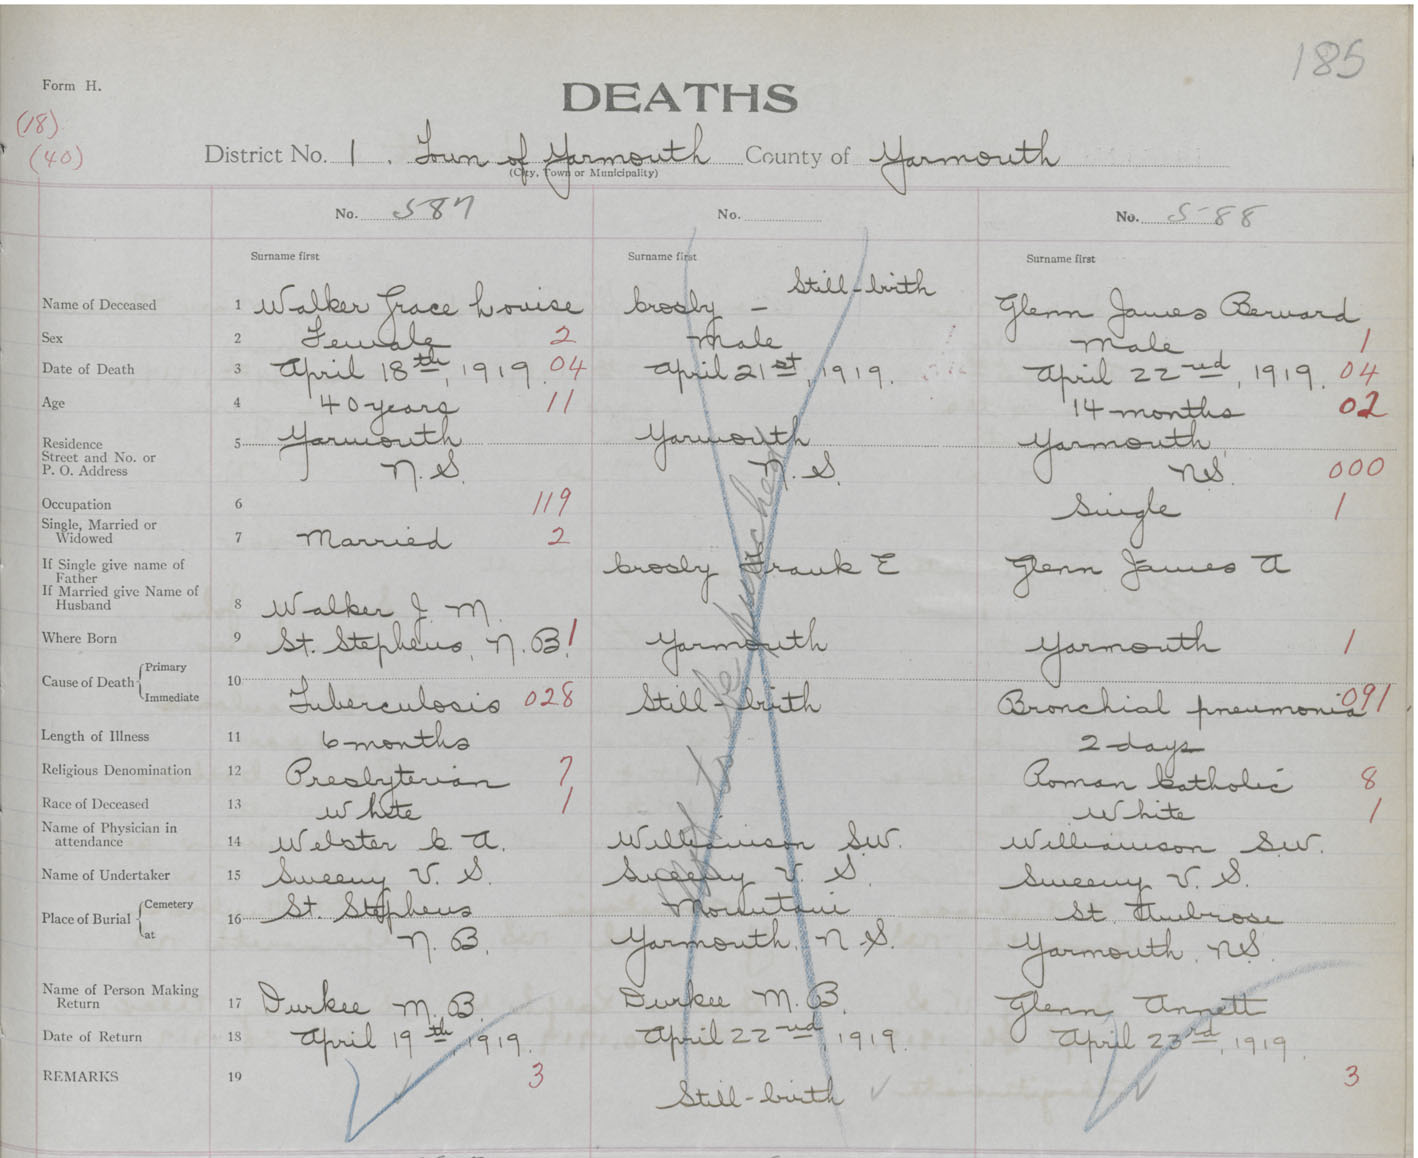 185
Form H.
DEATHS
(18)
(40)
District No. 1. Town of Yarmouth County of Yarmouth
(City, Town or Municipality)
No. 587 No. No. 588
Surname first Surname first Surname first
Still-birth
Name of Deceased 1 Walker Grace Louise Crosby — Glenn James Bernard
Sex 2 Female 2 Male Male 1
Date of Death 3 April 18th, 1919. 04 April 21st, 1919. April 22nd, 1919. 04
Age 4 40 years 11 14 months 02
Residence 5 Yarmouth Yarmouth Yarmouth
Street and No. or
P. O. Address N. S. N. S. N S. 000
Occupation 6 119 Single 1
Single, Married or
Widowed 7 Married 2
If Single give name of
Father Crosby Frank E Glenn James A
If Married give Name of
Husband 8 Walker J. M.
Where Born 9 St. Stephens, N. B. 1 Yarmouth Yarmouth 1
Cause of Death Primary 10
Immediate Tuberculosis 028 Still-birth Bronchial pneumonia 091
Length of Illness 11 6 months 2 days
Religious Denomination 12 Presbyterian 7 Roman Catholic 8
Race of Deceased 13 White 1 White 1
Name of Physician in
attendance 14 Webster C. A. Williamson S.W. Williamson S.W.
Name of Undertaker 15 Sweeny V. S. Sweeny V. S. Sweeny V. S.
Place of Burial Cemetery 16 St. Stephens Mountain St. Ambrose
at N. B. Yarmouth, N. S. Yarmouth, N.S.
Name of Person Making
Return 17 Durkee M. B. Durkee M. B. Glenn, Annett
Date of Return 18 April 19th, 1919. April 22nd, 1919. April 23rd, 1919.
REMARKS 19 3 Still-birth ✓ 3
to be punched